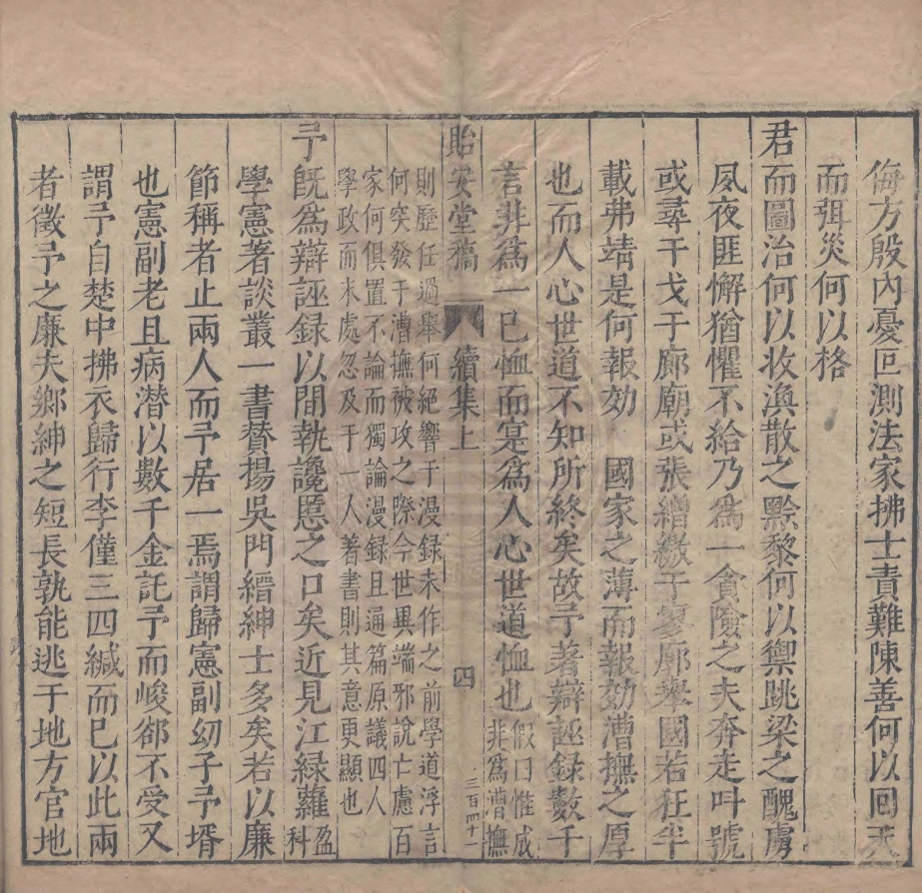 侮方殷内憂叵測法家拂士責難陳善何以回天
而弭災何以格
君而圖治何以收渙散之黔黎何以禦跳梁之醜虜
夙夜匪懈猶懼不給乃爲一貪險之夫奔走呌號
或尋干戈于廊廟或張繒繳于寥廓舉國若狂半
載弗靖是何報効　國家之薄而報効漕撫之厚
也而人心世道不知所終矣故予著辯誣録數千
言非爲一已恤而寔爲人心世道恤也假口惟成非爲漕撫
貽安堂稿　續集上　四　三百四十一
則歷任過舉何絕響于漫録未作之前學道浮言
何突發于漕撫被攻之際今世異端邪說亡慮百
家何俱置不論而獨論漫録且通篇原議四人
學政而末處忽及于一人著書則其意更顯也
予旣爲辯誣録以間執讒慝之口矣近見江緑蘿盈科
學憲著談叢一書賛揚吳門縉紳士多矣若以廉
節稱者止兩人而予居一焉謂歸憲副幼子予壻
也憲副老且病潜以數千金託予而峻郤不受又
謂予自楚中拂衣歸行李僅三四緘而巳以此兩
者徵予之廉夫鄉紳之短長孰能逃于地方官地